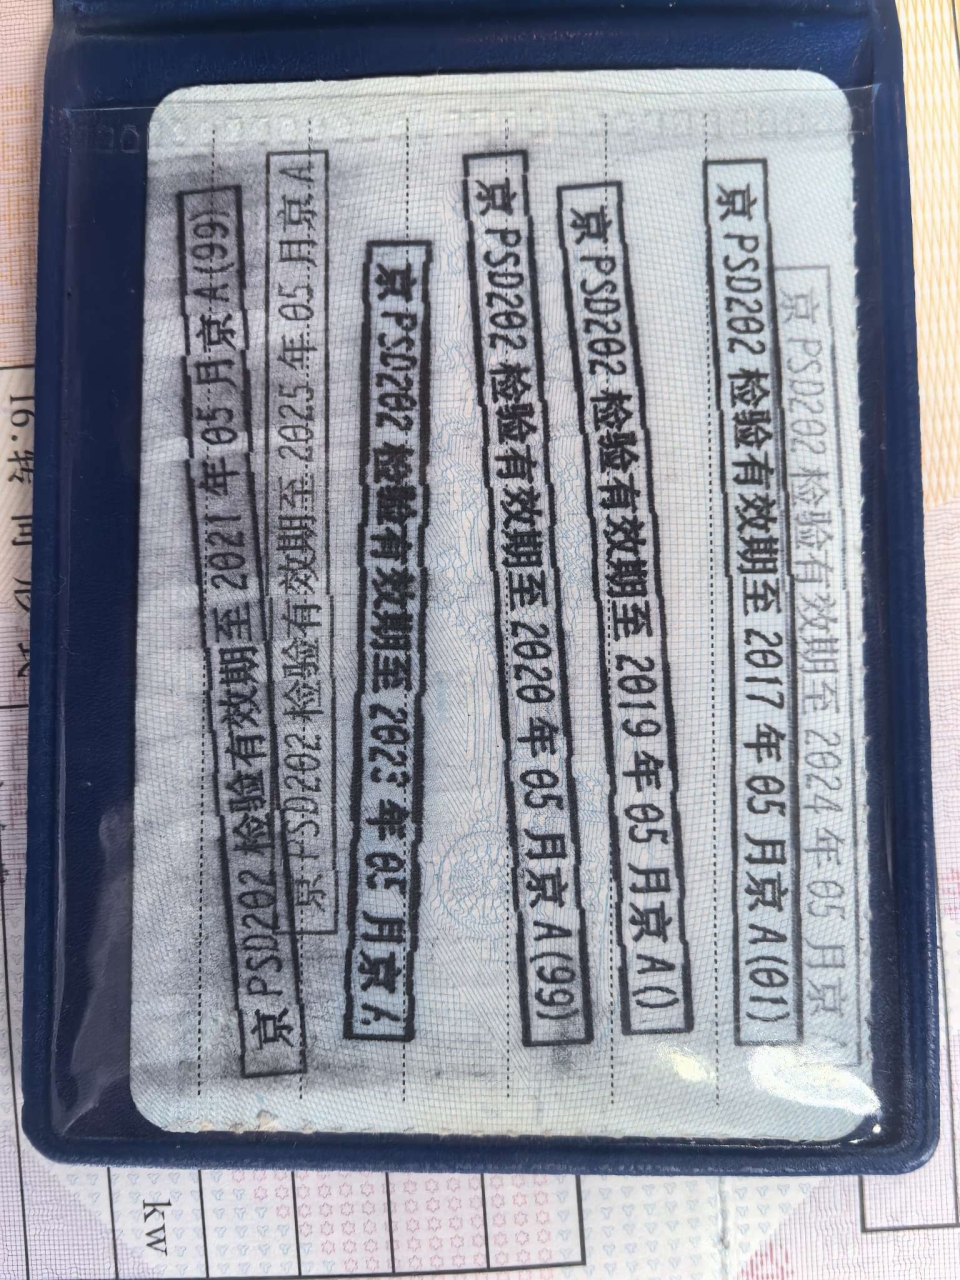 京 PSD202 检验有效期至 2024 年 05 月京
京 PSD202 检验有效期至 2017 年 05 月京 A(01)
京 PSD202 检验有效期至 2019 年 05 月京 A()
京 PSD202 检验有效期至 2020 年 05 月京 A(99)
京 PSD202 检验有效期至 2023 年 05 月京
京 PSD202 检验有效期至 2025 年 05 月京 A
京 PSD202 检验有效期至 2021 年 05 月京 A(99)
16.转
kw